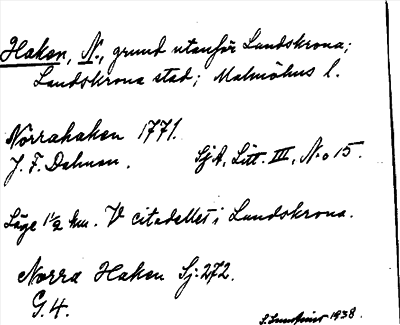 Haken, N., grund utanför Landskrona;
Landskrona stad; Malmöhus l.
Norrahaken 1771.
J. F. Dalman. SjA, Litt. III, No 15.
Läge 1 1/2 km. V citadellet i Landskrona.
Norra Haken Sj: 272.
G. 4.
1938.